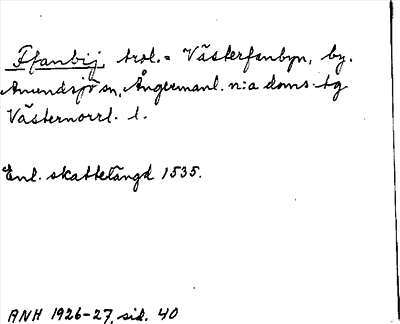 Ffanbij, trol. = Västerfanbyn, by.
Anundsjö sn, Ångermanl. n:a doms-tg
Västernorrl. l.
Enl. skattelängd 1535.
ANH 1926-27, sid. 40